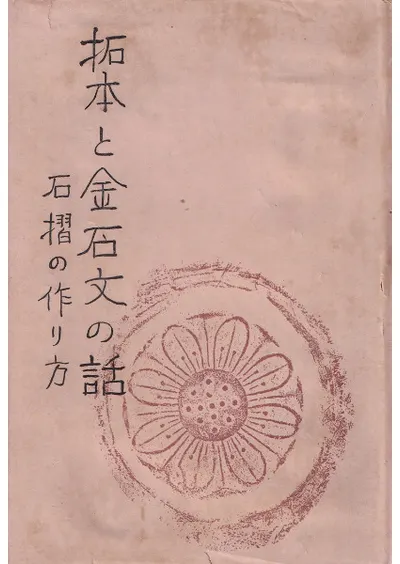 拓本と金石文の話
石摺の作り方